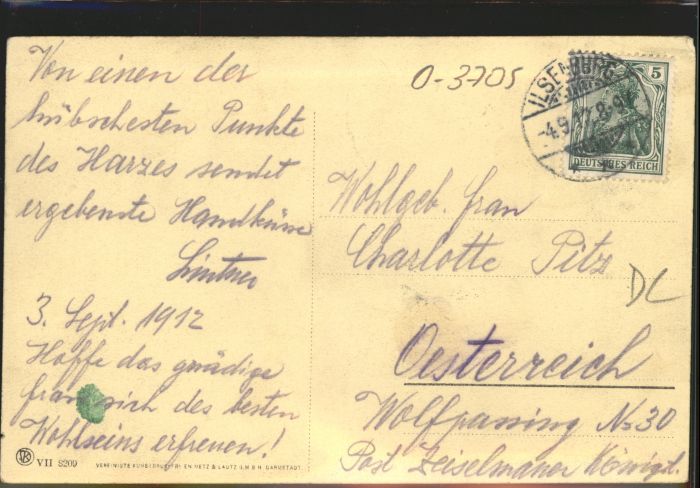 Von einen der
hübschesten Punkte
des Harzes sendet
ergebenste Handküsse
Lintner
3. Sept. 1912
Hoffe das gnädige
frau sich des besten
Wohlseins erfreuen!
VII S209
VEREINIGTE KUNSTINDUSTRIEN METZ & LAUTZ G.M.B.H. DARMSTADT
O-3705
ILSENBURG
-4.9.12.8-9V
5
DEUTSCHES REICH
Wohlgeb. frau
Charlotte Pitz
DL
Oesterreich
Wolfpassing No 30
Post Zeiselmauer